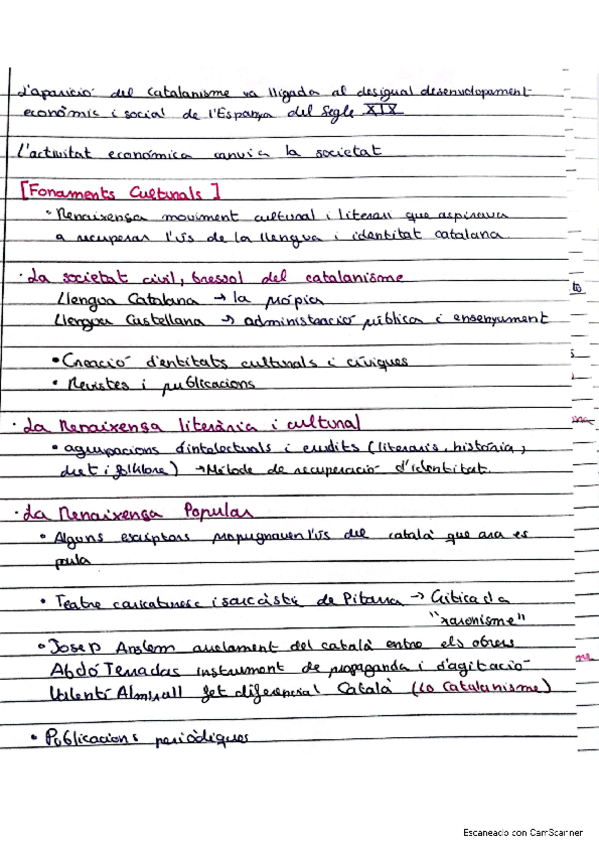 L'aparició del catalanisme va lligada al desigual desenvolupament
econòmic i social de l'Espanya del Segle XIX
L'activitat económica canvia la societat
[Fonaments Culturals]
• Renaixença moviment cultural i literari que aspirava
a recuperar l'ús de la llengua i identitat catalana.
· La societat civil, bressol del catalanisme
Llengua Catalana → la pròpia
Llengua Castellana → administració pública i ensenyament
• Creació d'entitats culturals i cíviques
• Revistes i publicacions
· La Renaixença literària i cultural
• agrupacions d'intelectuals i erudits (literaris, història,
dret i folklore) → Mètode de recuperació d'identitat.
· La Renaixença Popular
• Alguns escriptors propugnaven l'ús del català que ara es
parla
• Teatre caricaturesc i sarcàstic de Pitarra → Crítica a la
"raronisme"
• Josep Anslem arrelament del català entre els obrers
Abdó Terradas instrument de propaganda i d'agitació
Valentí Almirall fet diferencial Català (Lo Catalanisme)
• Publicacions periòdiques
Escaneado con CamScanner